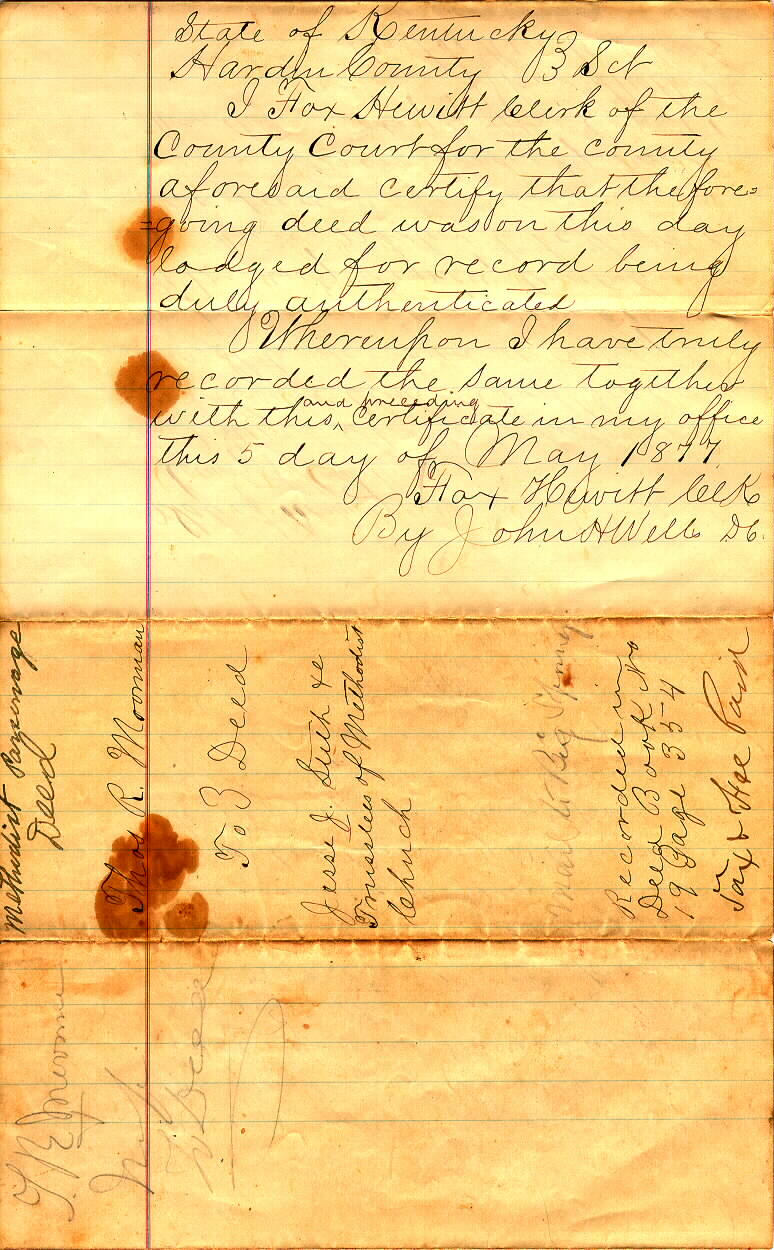 State of Kentucky
Hardin County } Sct
I Fox Hewitt Clerk of the
County Court for the county
aforesaid certify that the fore=
=going deed was on this day
lodged for record being
duly authenticated
Whereupon I have truly
recorded the same together
with this, and preceeding certificate in my office
this 5 day of May 1877
Fox Hewitt Clk
By John H Wells DC.
Methodist Parsonage
Deed
Thos R. Moorman
To } Deed
Jesse J. Suth &c
Trusstees of Methodist
Chuch
Mail to Big Spring
Recorded in
Deed Book No
19 Page 354
Tax & Fee Paid
T. R.
Deed